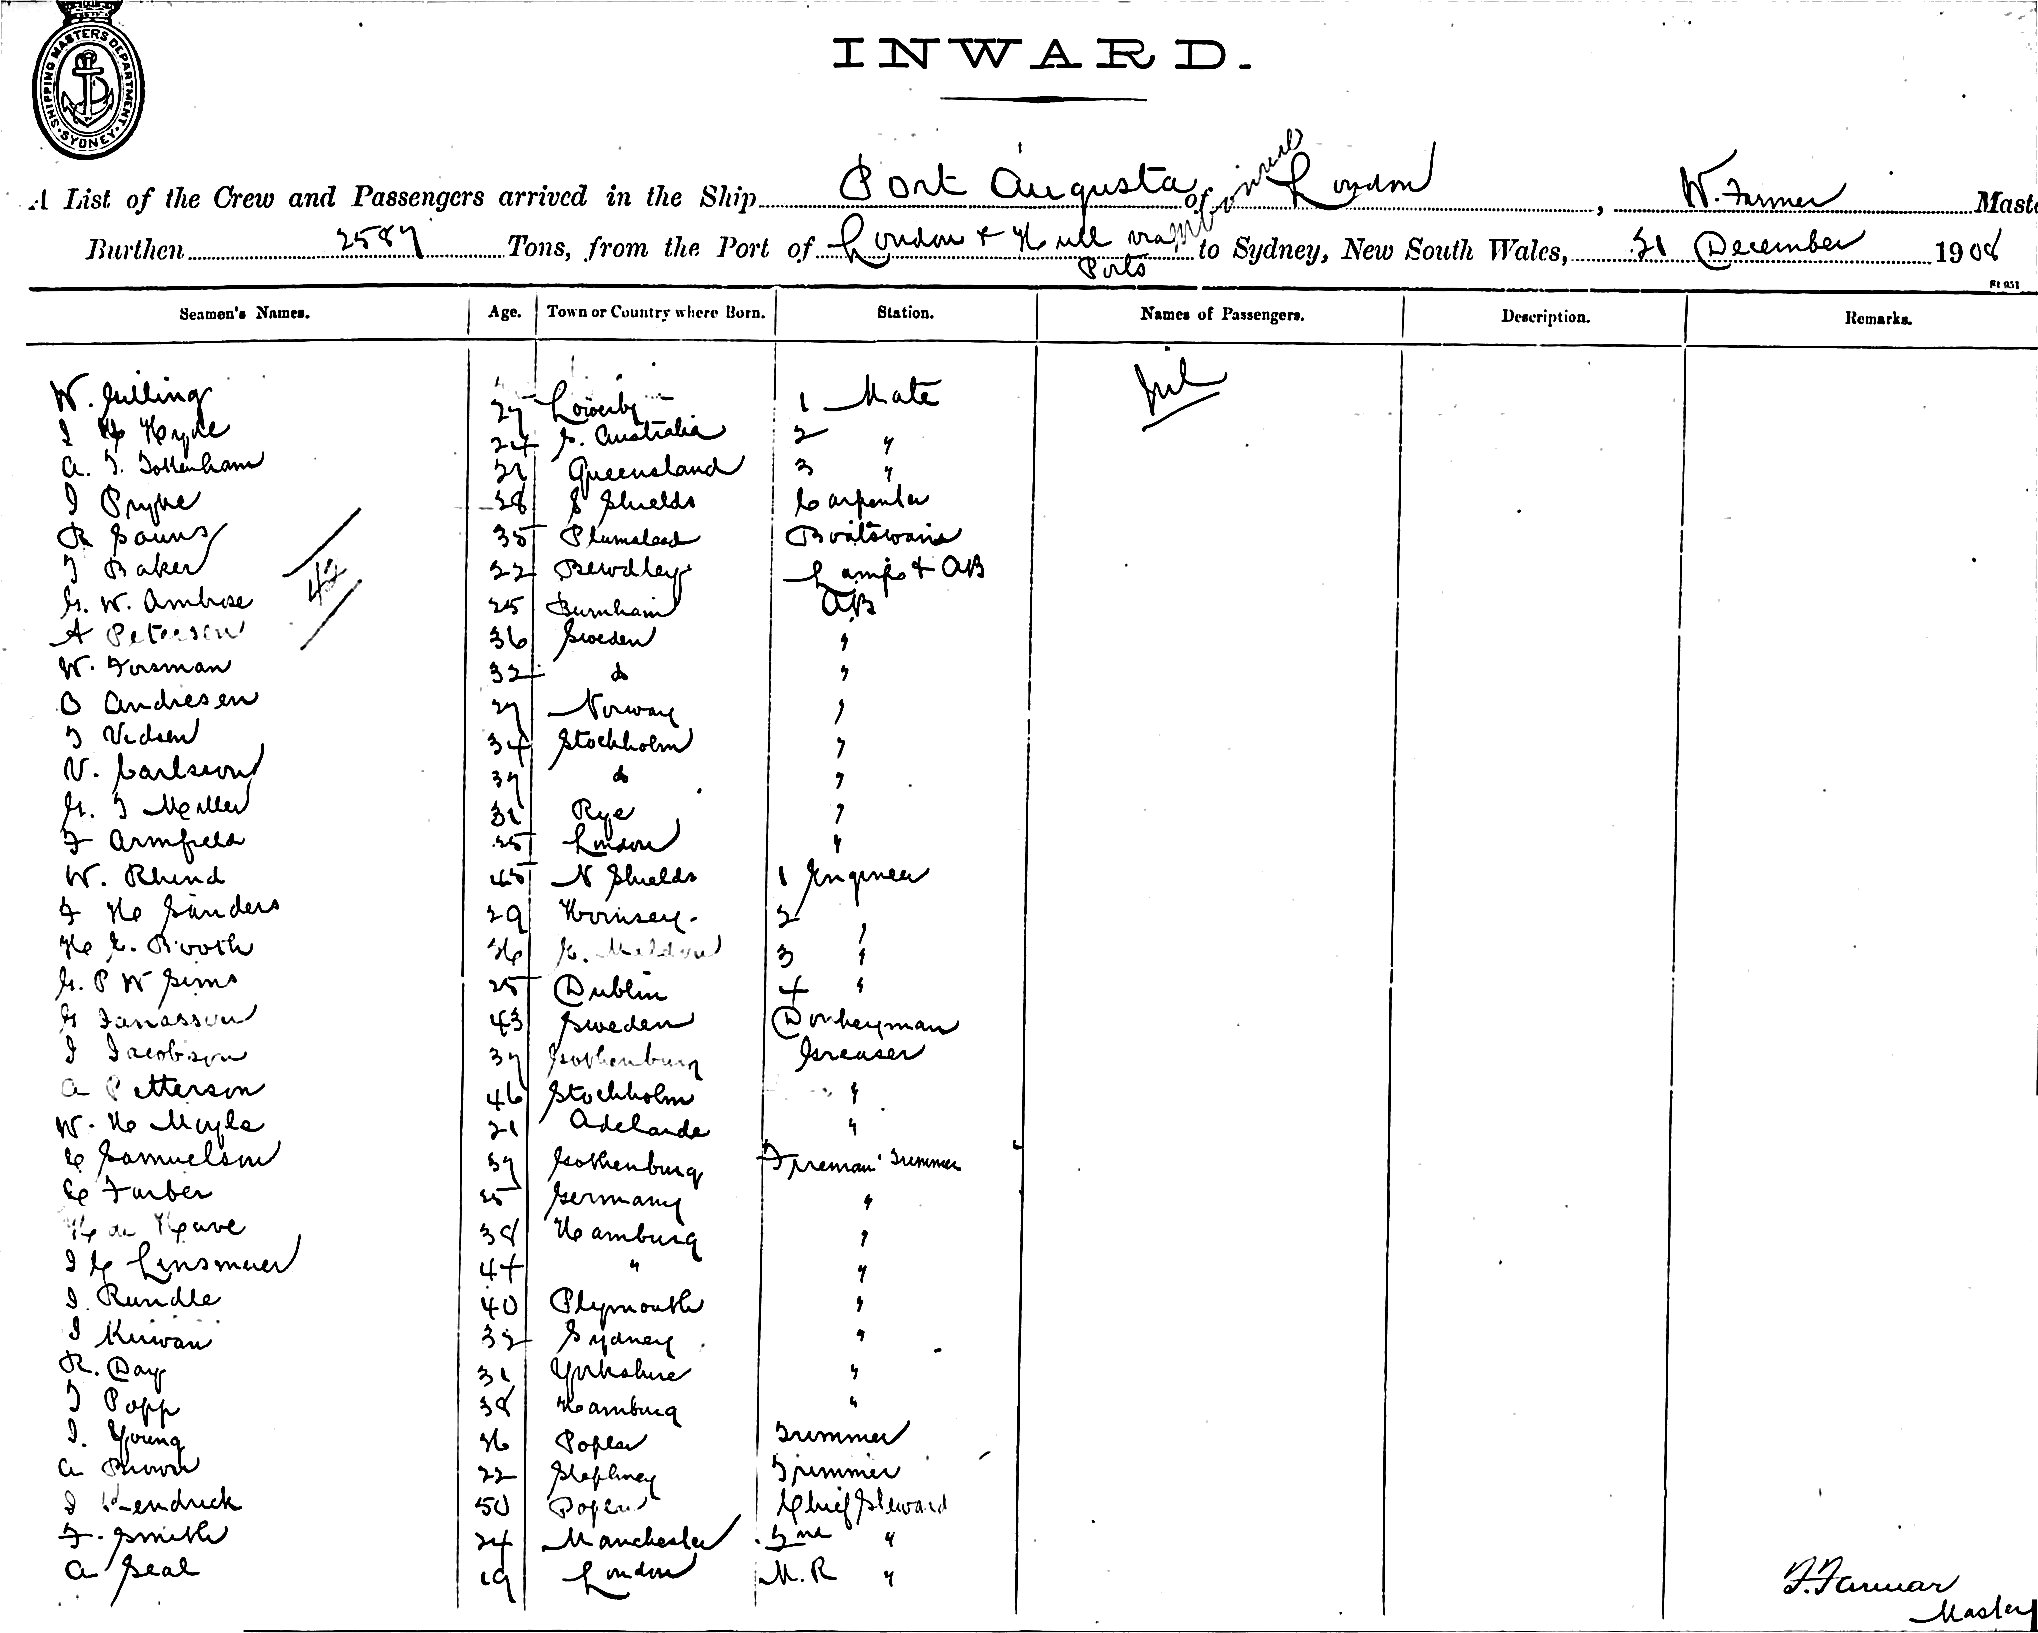 SHIPPING MASTERS DEPARTMENT · SYDNEY ·
INWARD.
A List of the Crew and Passengers arrived in the Ship Port Augusta of London, W. Farmer Maste
Burthen 2587 Tons, from the Port of London & Hull via Ports to Sydney, New South Wales, 31 December 1908
Seamen's Names. Age. Town or Country where Born. Station. Names of Passengers. Description. Remarks.
W. Gilling 27 Lowerby 1 Mate Nil
J H Hyde 24 S. Australia 2 "
A. T. Tottenham 21 Queensland 3 "
J Pryke 28 S Shields Carpenter
R 35 Plumstead Boatswain
T Baker 22 Bewdley Lamps & AB
G. W. Ambrose 25 Burnham AB
42
A Petersen 36 Sweden "
W. Forsman 32 do "
O Andresen 27 Norway "
34 Stockholm "
V. Carlsson 37 do "
G. T Miller 31 Rye "
F Armfield 25 London "
W. Rhind 45 N Shields 1 Engineer
F H Sanders 29 Hornsey 2 "
H E. Booth 26 3 "
G. P W Sims 25 Dublin 4 "
G Janasson 43 Sweden Donkeyman
J Jacobson 37 Gothenburg Greaser
A Petterson 46 Stockholm "
W. H Moyle 21 Adelaide "
C Samuelson 37 Gothenburg Fireman Trimmer
C Farber 25 Germany "
H de Have 38 Hamburg "
J C Linsmeier 44 " "
J. Rundle 40 Plymouth "
J Kirwan 32 Sydney "
R. Day 31 Yorkshire "
T Popp 38 Hamburg "
J. Young 26 Poplar Trimmer
A Brown 22 Stephney Trimmer
J Kendrick 50 Poplar Chief Steward
F. Smith 24 Manchester 2nd "
A Seal 19 London M. R "
F. Farmar
Master